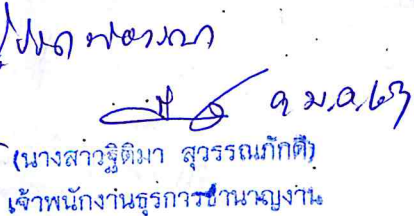 โปรดพิจารณา
(นางสาวฐิติมา สุวรรณภักดี)
เจ้าพนักงานธุรการชำนาญงาน